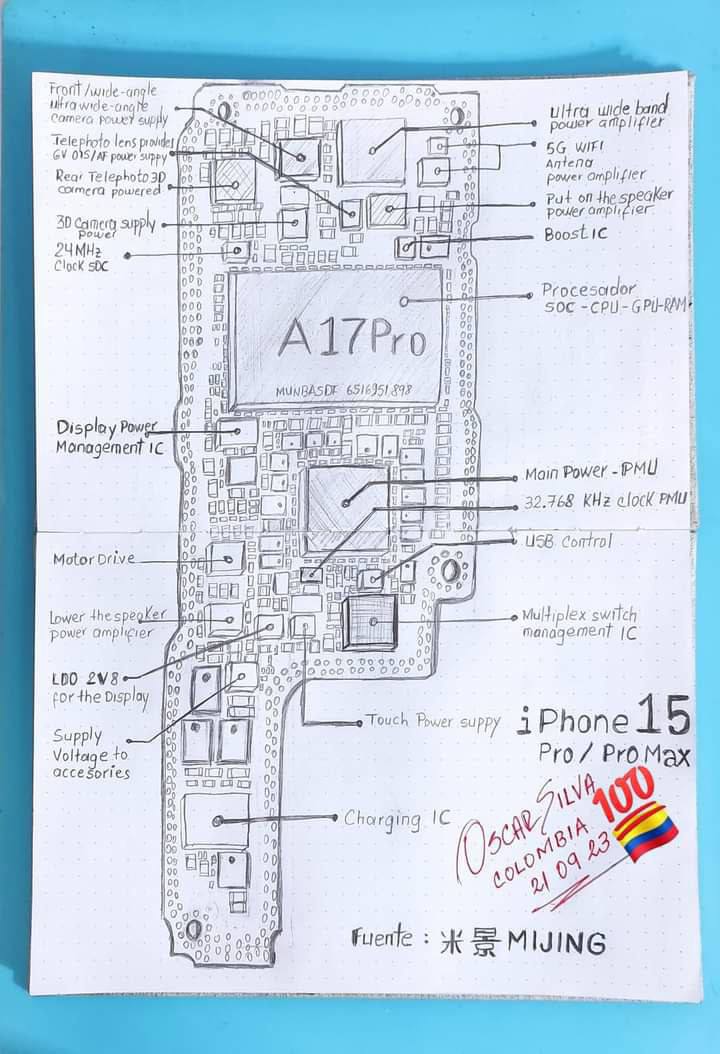 Front/wide-angle
ultra wide-angle
camera power supply
Telephoto lens provides
6V OIS/AF power supply
Rear Telephoto 3D
camera powered
3D Camera supply
Power
24MHz
Clock SOC
Display Power
Management IC
Motor Drive
Lower the speaker
power amplifier
LDO 2V8
for the Display
Supply
Voltage to
accesories
Ultra wide band
power amplifier
5G WIFI
Antena
power amplifier
Put on the speaker
power amplifier
Boost IC
Procesador
SOC-CPU-GPU-RAM
A17Pro
MUNBASDF 6516951898
Main Power-PMU
32.768 KHz clock PMU
USB Control
Multiplex switch
management IC
Touch Power suppy
Charging IC
iPhone 15
Pro/Pro Max
OSCAR SILVA
COLOMBIA
21 09 23
100
Fuente : 米景 MIJING